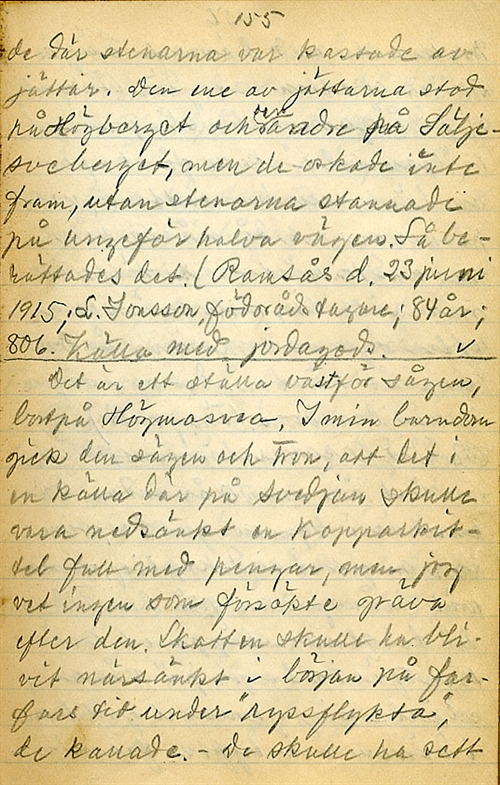 155
de där stenarna var kastade av
jättar. Den ene av jättarna stod
på Högberget och den andre på Sälje-
sveberget, men de orkade inte
fram, utan stenarna stannade
på ungefär halva vägen. Så be-
rättades det. (Ramsås d. 23 juni
1915; L. Jonsson födorådstagare; 84 år;
806. Källa med jordagods. ✓
Det är ett ställa västför sågen,
bortpå Högmosvea, I min barndom
gick den sägen och tron, att det i
en källa där på svedjan skulle
vara nedsänkt en kopparkit-
tel full med pengar, men jag
vet ingen som försökte gräva
efter den. Skatten skulle ha bli-
vit närsänkt i början på far-
fars tid under "ryssflykta",
de kallade. - De skulle ha sett